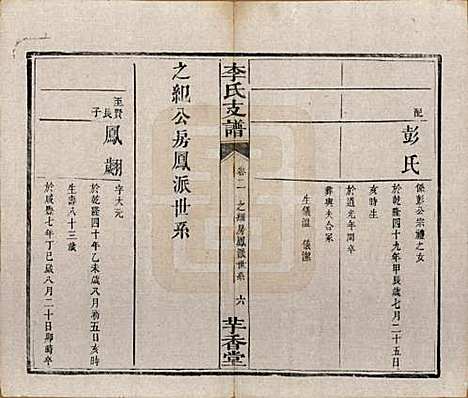 配
彭氏
係彭公宗禮之女
於乾隆四十九年甲辰歲七月二十五日
亥時生
於道光年間卒
葬與夫合冢
生儀溫 儀潔
李氏支譜
卷二 之紀房鳳派世系 六
芉香堂
之紀公房鳳派世系
至賢長子
鳳翽
字大元
於乾隆四十年乙未歲八月初五日亥時
生壽八十三歲
於咸豐七年丁巳歲八月二十日卯時卒